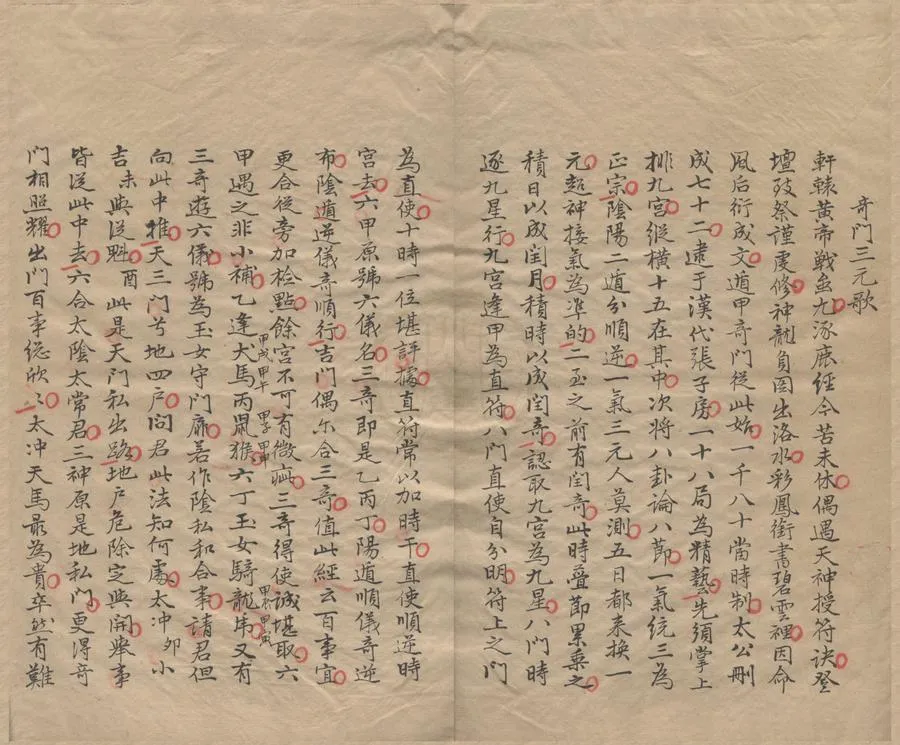 奇門三元歌
軒轅黃帝戰蚩九涿鹿經今苦未休偶遇天神授符訣登
壇致祭謹虔修神龍負图出洛水彩鳳銜書碧雲裡因命
風后衍成文遁甲奇門從此始一千八十當時制太公刪
成七十二逮于漢代張子房一十八局為精藝先須掌上
排九宮縱橫十五在其中次將八卦論八節一氣統三為
正宗陰陽二遁分順逆一氣三元人莫測五日都来換一
元超神接氣為準的二至之前有閏奇此時疊節累乘之
積日以成閏月積時以成閏奇認取九宮為九星八門時
逐九星行九宮逢甲為直符八門直使自分明符上之門
為直使十時一位堪評據直符常以加時干直使順逆時
宮去六甲原號六儀名三奇即是乙丙丁陽遁順儀奇逆
布陰遁逆儀奇順行吉門偶尔合三奇值此經云百事宜
更合從旁加检點餘宮不可有微疵三奇得使誠堪取六
甲遇之非小補乙逢犬馬甲戌甲午丙鼠猴甲子甲申六丁玉女騎龍虎甲辰甲寅又有
三奇遊六儀號為玉女守門扉若作陰私和合事請君但
向此中推天三門兮地四户问君此法知何處太冲卯小
吉未與從魁酉此是天門私出路地户危除定與開舉事
皆從此中去六合太陰太常君三神原是地私門更得奇
門相照耀出門百事縂欣〻太冲天馬最為貴卒然有難